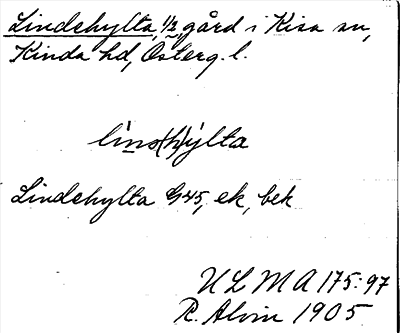 Lindehylta, 1/2 gård i Kisa sn,
Kinda hd, Österg. l.
Lindehylta G45, ek, bek
ULMA 175:97
R. Alvin 1905